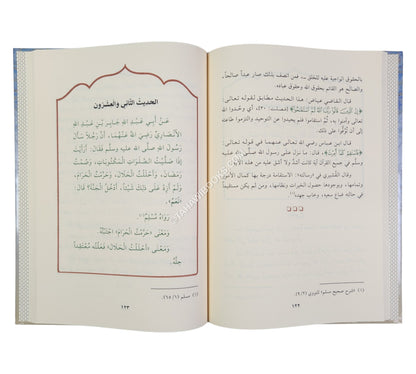 بالحقوق الواجبة عليه للخلق ..، فمن اتصف بذلك صار عبداً صالحاً،
والصالح هو القائم بحقوق الله وحقوق عباده.
قال القاضي عياض: هذا الحديث مطابق لقوله تعالى:
﴿إِنَّ الَّذِينَ قَالُوا رَبُّنَا اللَّهُ ثُمَّ اسْتَقَامُوا﴾ [فصلت: ٣٠]، أي وحدوا الله
تعالى وآمنوا به، ثم استقاموا، فلم يحيدوا عن التوحيد، والتزموا طاعته
إلى أن تُوُفُّوا على ذلك
قال ابن عباس رضي الله تعالى عنهما في قوله تعالى:
﴿فَاسْتَقِمْ كَمَا أُمِرْتَ﴾: ما نزل على رسول الله صلى الله عليه
وسلم في جميع القرآن آية كانت أشد ولا أشق عليه من هذه الآية.
قال القشيري في «رسالته»: الاستقامة درجة بها كمال الأمور
وتمامها، وبوجودها حصول الخيرات ونظامها، ومن لم يكن مستقيماً
في حاله ضاع سعيه، وخاب جهده
(١) «شرح صحيح مسلم» للنووي (٩/٢).
١٢٢
الحديث الثاني والعشرون
عَنْ أَبِي عَبْدِ اللهِ جَابِرِ بْنِ عَبْدِ اللهِ
الأَنْصَارِيِّ رَضِيَ اللهُ عَنْهُمَا، أَنَّ رَجُلاً سَأَلَ
رَسُولَ اللهِ صلى الله عليه وسلم فَقَالَ: أَرَأَيْتَ
إِذَا صَلَّيْتُ الصَّلَوَاتِ الْمَكْتُوبَاتِ، وَصُمْتُ
رَمَضَانَ، وَأَحْلَلْتُ الْحَلَالَ، وَحَرَّمْتُ الْحَرَامَ،
وَلَمْ أَزِدْ عَلَى ذَلِكَ شَيْئاً، أَدْخُلُ الْجَنَّةَ؟ قَالَ:
نَعَمْ
رَوَاهُ مُسْلِمٌ
وَمَعْنَى «حَرَّمْتُ الْحَرَامَ» اجْتَنَبْتُهُ
وَمَعْنَى «أَحْلَلْتُ الْحَلَالَ» فَعَلْتُهُ مُعْتَقِداً
حِلَّهُ.
(١) مسلم (٦٥/١).
١٢٣